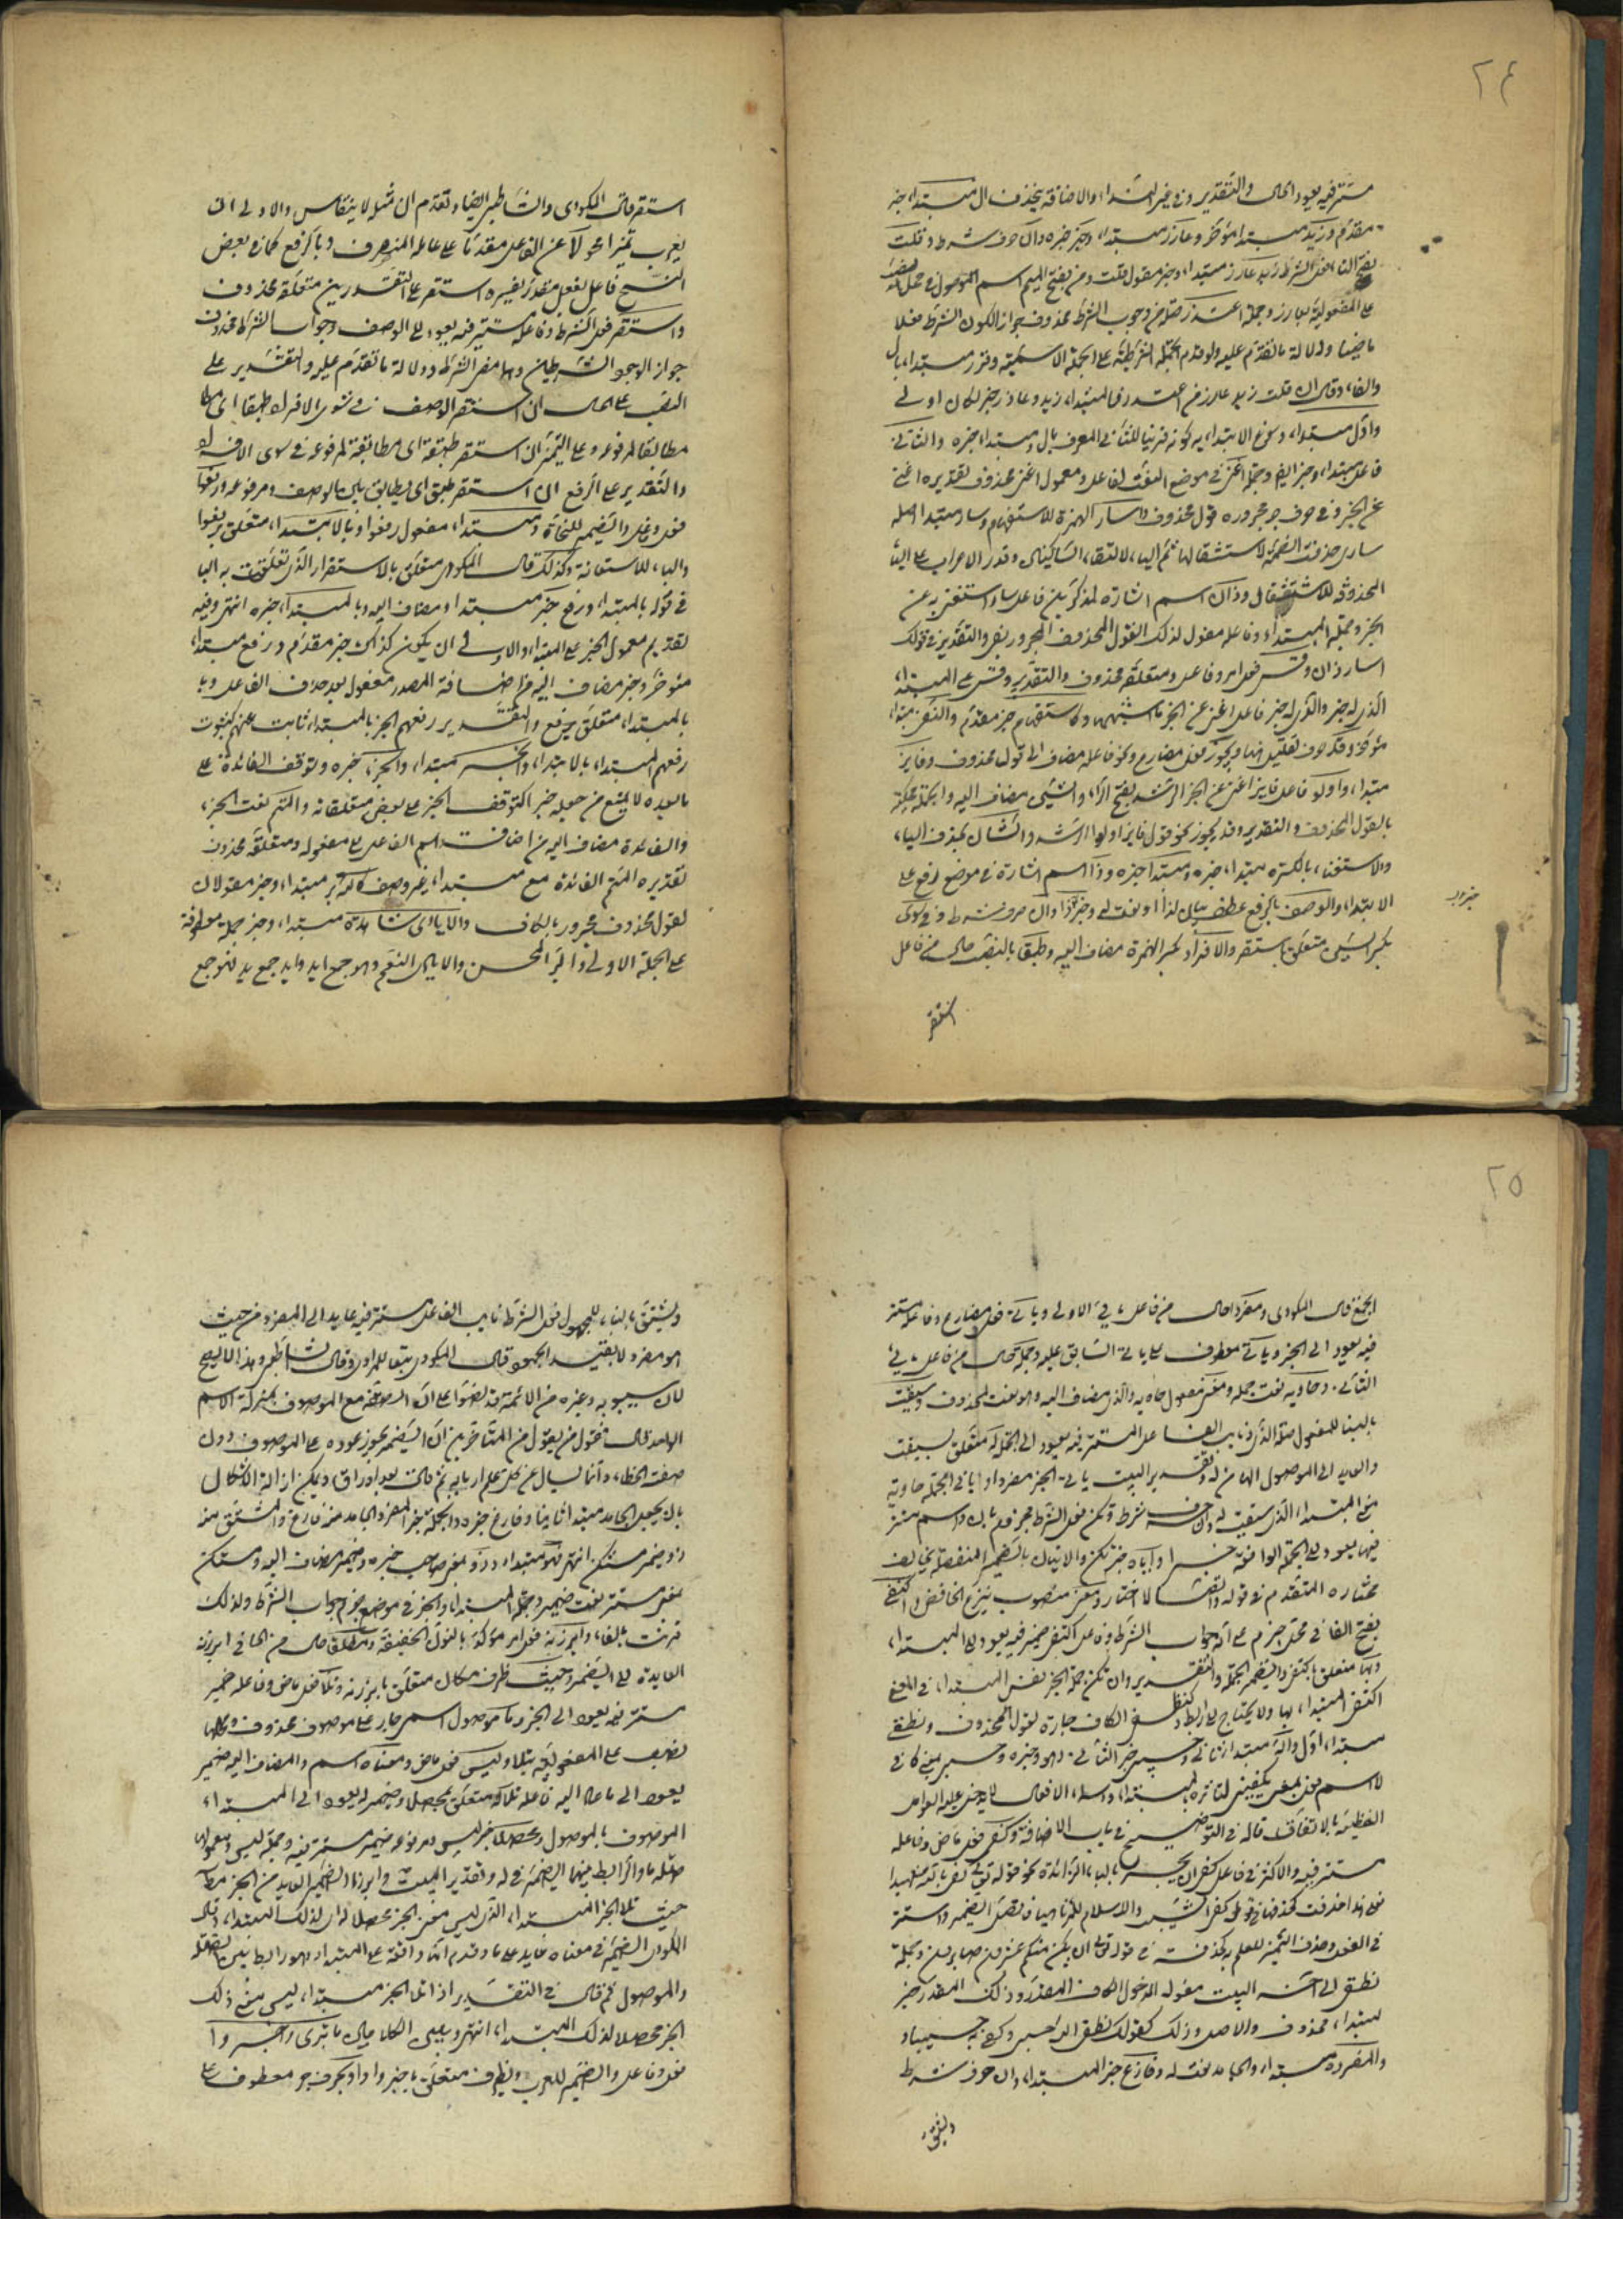 ٢٤
مستتر فيه يعود الى الحال والتقدير وذو خبر ابتداء والاضافة بحذف ال مبتدا خبر
مقدم وزيد مبتدا مؤخر وعاذر مبتدا وخبر خبره وان حرف شرط وقلت
بفتح التاء فعل الشرط زيد عاذر مبتدا وخبر مقول قلت ومن بفتح الميم اسم الموصول في محل نصب
على المفعولية بعاذر وجملة اعتذر صلة من وجواب الشرط محذوف جواز لكون الشرط فعلا
ماضيا ولدلالة ما تقدم عليه ولو قدم الجملة الشرطية على الجملة الاسمية وقرن مبتدا بال
والفاء وقال ان قلت زيد عاذر من اعتذر فالمبتدا زيد وعاذر خبر لكان اولى
واول مبتدا وسوغ الابتداء به كونه قرينا للثاني المعرف بال ومبتدا خبره والثاني
فاعل مبتدا وخبر ايضا وجملة اغنى في موضع النعت لفاعل ومعمول اغنى محذوف تقديره اغنى
عن الخبر وفي حرف جر مجروره قول محذوف واسار الهمزة للاستفهام وسار مبتدا اصله
سارى حذفت الضمة لاستثقالها ثم الياء لالتقاء الساكنين وقدر الاعراب على الياء
المحذوفة للاستثقال وذان اسم اشارة لمذكرين فاعل سار استغنى به عن
الخبر وجملة المبتدا وفاعله مقول لذلك القول المحذوف المجرور بفي والتقدير في قولك
اسار ذان وقس فعل امر وفاعل ومتعلقه محذوف والتقدير وقس على المبتدا
الذي له خبر والذي له خبر فاعل اغنى عن الخبر ما اشبههما وكاستفهام خبر مقدم والنفي مبتدا
مؤخر وقد حرف تقليل هنا ويجوز فعل مضارع ونحو فاعله مضاف الى قول محذوف وفايز
مبتدا واولو فاعل فايز اغنى عن الخبر الرشد بفتح الراء والشين مضاف اليه والجملة محكية
بالقول المحذوف والتقدير وقد يجوز نحو قول فايز اولوا الرشد والثان بحذف الياء
والاستغناء بالكسرة مبتدا خبره ومبتدا خبره وذا اسم اشارة في موضع رفع على
الابتداء والوصف بالرفع عطف بيان لذا او نعت له وخبر خبر ذا وان حرف شرط وفي سوى
بكسر السين متعلق باستقر والافراد بكسر الهمزة مضاف اليه وطبقا بالنصب حال من فاعل
استقر
استقر قاله المكودى والشاطبى ايضا وتقدم ان مثله لا ينقاس والاولى ان
يعرب تمييزا محولا عن الفاعل مقدما على عامله المتصرف وبالرفع كما في بعض
النسخ فاعل بفعل مقدر يفسره استقر على التقديرين متعلقه محذوف
واستقر فعل الشرط وفاعله مستتر فيه يعود الى الوصف وجواب الشرط محذوف
جواز الوجود الشرطين وهما مضى الشرط ودلالة ما تقدم عليه والتقدير على
النصب على الحال ان استقر الوصف في سوى الافراد طبقا اى حال
مطابقا لمرفوعه وعلى التمييز ان استقر طبقه اى مطابقته لمرفوعه في سوى الافراد
والتقدير على الرفع ان استقر طبق اى تطابق بين الوصف ومرفوعه ورفعوا
فعل وفاعل والضمير للنحاة ومبتدا مفعول رفعوا وبالابتدا متعلق برفعوا
والباء للاستعانة وكذلك قال المكودى متعلق بالاستقرار الذي تعلقت به الباء
في قوله بالمبتدا ورفع خبر مبتدا ومضاف اليه وبالمبتدا خبره انتهى وفيه
تقديم معمول الخبر على المبتدا والاولى ان يكون كذاك خبر مقدم ورفع مبتدا
مؤخر وخبر مضاف اليه من اضافة المصدر لمفعوله بعد حذف الفاعل وبا
بالمبتدا متعلق برفع والتقدير رفعهم الخبر بالمبتدا ثابت عنهم كثبوت
رفعهم المبتدا بالابتدا والخبر مبتدا والجزء خبره وتوقف الفائدة على
ما بعده لا يمنع من جعله خبرا كتوقف الخبر على بعض متعلقاته والمتم نعت الجزء
والفائدة مضاف اليه من اضافة اسم الفاعل الى مفعوله ومتعلقه محذوف
تقديره المتم الفائدة مع مبتدا غير وصف كالله بر مبتدا وخبر مقولان
لقول محذوف مجرور بالكاف والايادى شاهدة مبتدا وخبر جملة معطوفة
على الجملة الاولى والبر المحسن والايادى النعم وهو جمع ايد وايد جمع يد فهو جمع
٢٥
الجمع قال المكودى ومفردا حال من فاعل ياتى الاولى وياتى فعل مضارع وفاعله مستتر
فيه يعود الى الخبر وياتى معطوف على ياتى السابق عليه وجملة حال من فاعل ياتى
الثانى وحاويه نعت جمله ومعنى مفعول حاويه والذي مضاف اليه وهو نعت لمحذوف وسيقت
بالبناء للمفعول صلة الذي ونايب الفاعل المستتر فيه يعود الى الجملة له متعلق بسيقت
والعايد الى الموصول الهاء من له وتقدير البيت ياتى الخبر مفردا وياتى الجملة حاوية
معنى المبتدا الذي سيقت له وان حرف شرط وتكن فعل الشرط مجزوم بان واسمه مستتر
فيها يعود الى الجملة الواقعة خبرا واياه خبر تكن والاتيان بالضمير المنفصل يخالف
مختاره المتقدم في قوله واتصالا اختار ومعنى منصوب بنزع الخافض واكتفى
بفتح الفاء في محل جزم على انه جواب الشرط وفاعل اكتفى ضمير فيه يعود الى المبتدا
وبها متعلق باكتفى والضمير للجملة والتقدير وان تكن جملة الخبر نفس المبتدا في المعنى
اكتفى المبتدا بها ولا يحتاج الى رابط كنطقى الكاف جارة لقول محذوف ونطقى
مبتدا اول والله مبتدا ثانى وحسبى خبر الثانى وهو وخبره وحسبى يعنى كافى
لا اسم فعل بمعنى يكفينى لتاثره بالمبتدا واسماء الافعال لا يدخل عليها العوامل
اللفظية بالاتفاق قاله في التوضيح في باب الاضافة وكفى فعل ماض وفاعله
مستتر فيه والاكثر في فاعل كفى ان يجر بالباء الزائدة نحو قوله تعالى كفى بالله شهيدا
فعلى هذا حذفت كحذفها في قوله كفى الشيب والاسلام للمرء ناهيا فاتصل الضمير واستتر
في الفعل وحذف التمييز للعلم به كحذفه في قوله تعالى ان يكن منكم عشرون صابرون وجملة
نطقى الى اخر البيت مقولة لمدخول الكاف المقدر وذلك المقدر خبر
لمبتدا محذوف والاصل وذلك كقولك نطقى الله حسبى وكفى به حسيبا
والمفرد مبتدا والجامد نعت له وفارغ خبر المبتدا وان حرف شرط
ويشتق
ويشتق بالبناء للمجهول فعل الشرط نايب الفاعل مستتر فيه عايد الى المفرد من حيث
هو مفرد لا بقيد الجمود قاله المكودى تبعا للمرادى وقال الشاطبى وهذا لا يصح
لان سيبويه وغيره من الائمة قد نصوا على ان الصفة مع الموصوف بمنزلة الاسم
الواحد قال فنحو من يقول من المتاخرين ان الضمير يجوز عوده على الموصوف دون
صفته الخطاء وانما يسال عن كل علم اربابه ثم قال بعد اوراق ويمكن ازالة الاشكال
بان يجعل الجامد مبتدا ثانيا وفارغ خبره والجملة خبر المفرد والجامد منه فارغ والمشتق منه
ذو ضمير مستكن انتهى فهو مبتدا وذو بمعنى صاحب خبره وضمير مضاف اليه ومستكن
بمعنى مستتر نعت ضمير وجملة المبتدا والخبر في موضع جزم جواب الشرط ولذلك
قرنت بالفاء وابرزنه فعل امر مؤكد بالنون الخفيفة ومطلقا حال من الهاء في ابرزنه
العايدة الى الضمير وحيث ظرف مكان متعلق بابرزنه وتلا فعل ماض وفاعله ضمير
مستتر فيه يعود الى الخبر وما موصول اسمى جار على موصوف محذوف ومحلها
نصب على المفعولية بتلا وليس فعل ماض ومعناه اسم والمضاف اليه ضمير
يعود الى ما عاد اليه فاعل تلا له متعلق بمحصلا وضمير له يعود الى المبتدا
الموصوف بالموصول ومحصلا خبر ليس ومرفوعه ضمير مستتر فيه وجملة ليس ومعموليها
صلة ما والرابط بينهما الضمير في له وتقدير البيت وابرز الضمير العايد من الخبر مطلقا
حيث تلا الخبر المبتدا الذي ليس معنى الخبر محصلا له اى لذلك المبتدا وقال
المكودى الضمير في معناه عايد على ما وقدم انها واقعة على المبتدا وهو رابط بين الصلة
والموصول ثم قال في التقدير اذا تلا الخبر مبتدا ليس معنى ذلك
الخبر محصلا لذلك المبتدا انتهى وبين الكلامين ما ترى واخبروا
فعل وفاعل والضمير للعرب وبظرف متعلق باخبروا او بحرف جر معطوف على